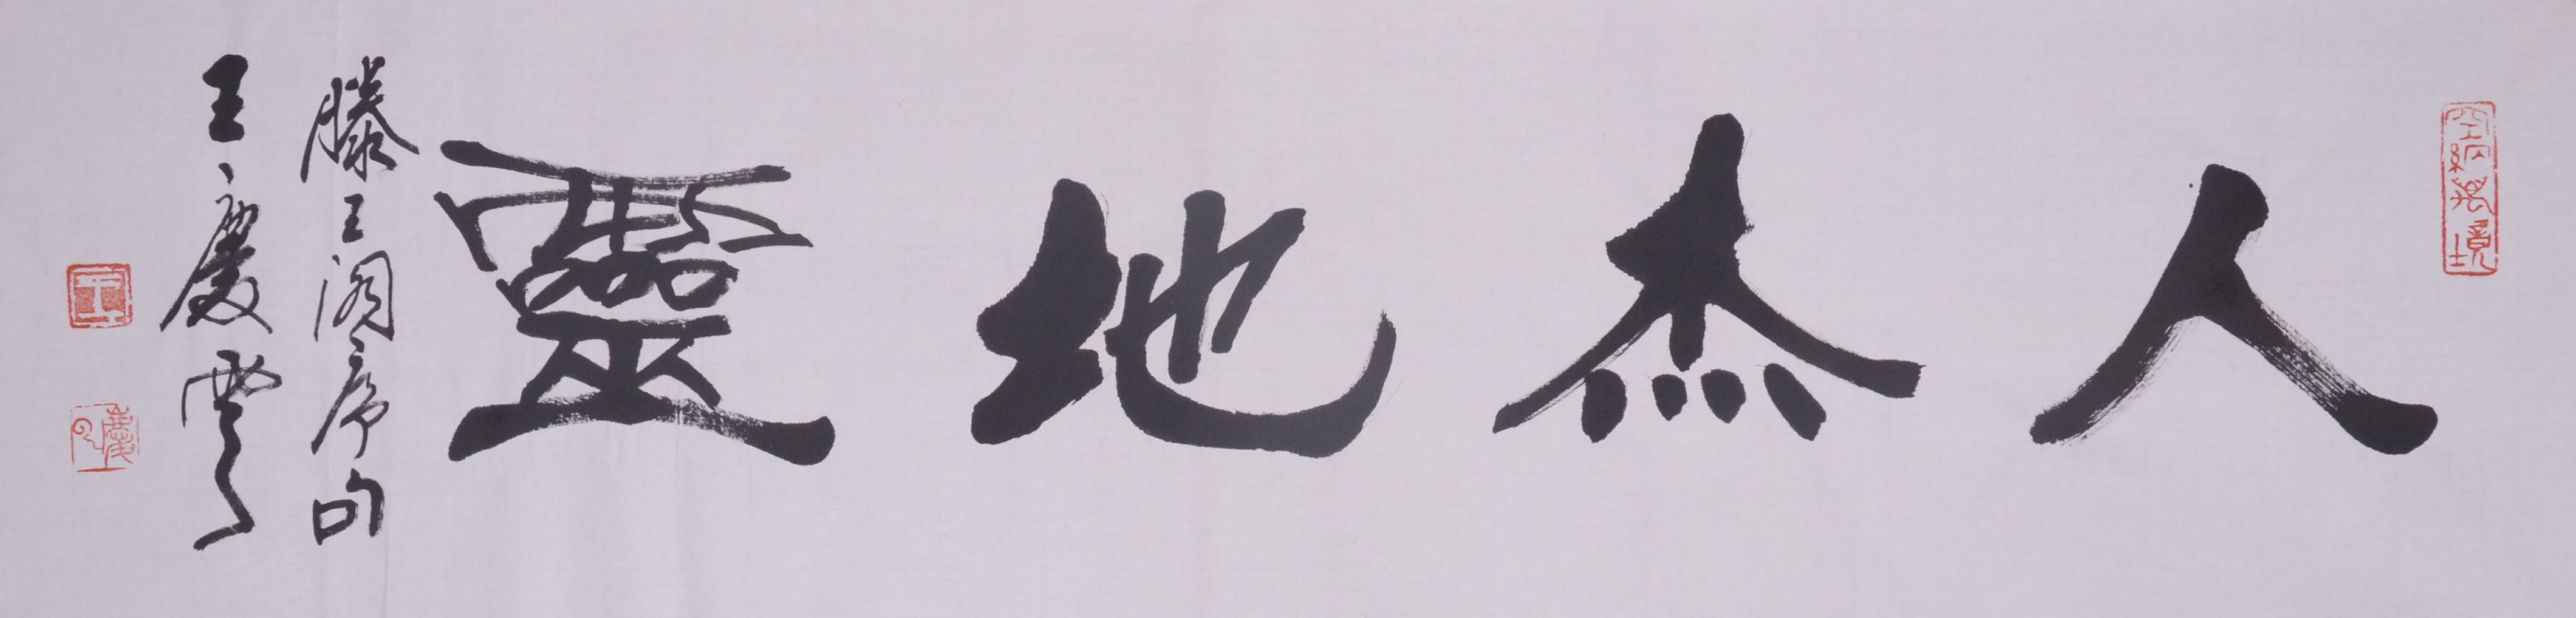 人杰地靈
滕王阁序句
王慶雲
空納萬境
王
慶雲